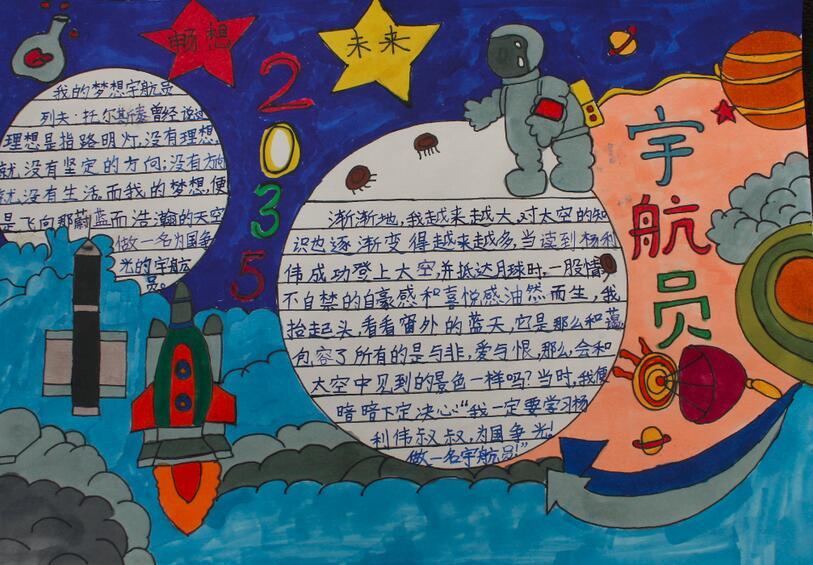 畅想
未来
2035
宇航员
我的梦想宇航员
列夫·托尔斯泰曾经说过
理想是指路明灯，没有理想
就没有坚定的方向；没有方向
就没有生活。而我的梦想便
是飞向那蔚蓝而浩瀚的天空
做一名为国争
光的宇航
员。
渐渐地，我越来越大，对太空的知
识也逐渐变得越来越多，当读到杨利
伟成功登上太空并抵达月球时，一股情
不自禁的自豪感和喜悦感油然而生，我
抬起头，看看窗外的蓝天，它是那么和蔼，
包容了所有的是与非，爱与恨，那么，会和
太空中见到的景色一样吗？当时，我便
暗暗下定决心“我一定要学习杨
利伟叔叔，为国争光！
做一名宇航员！”